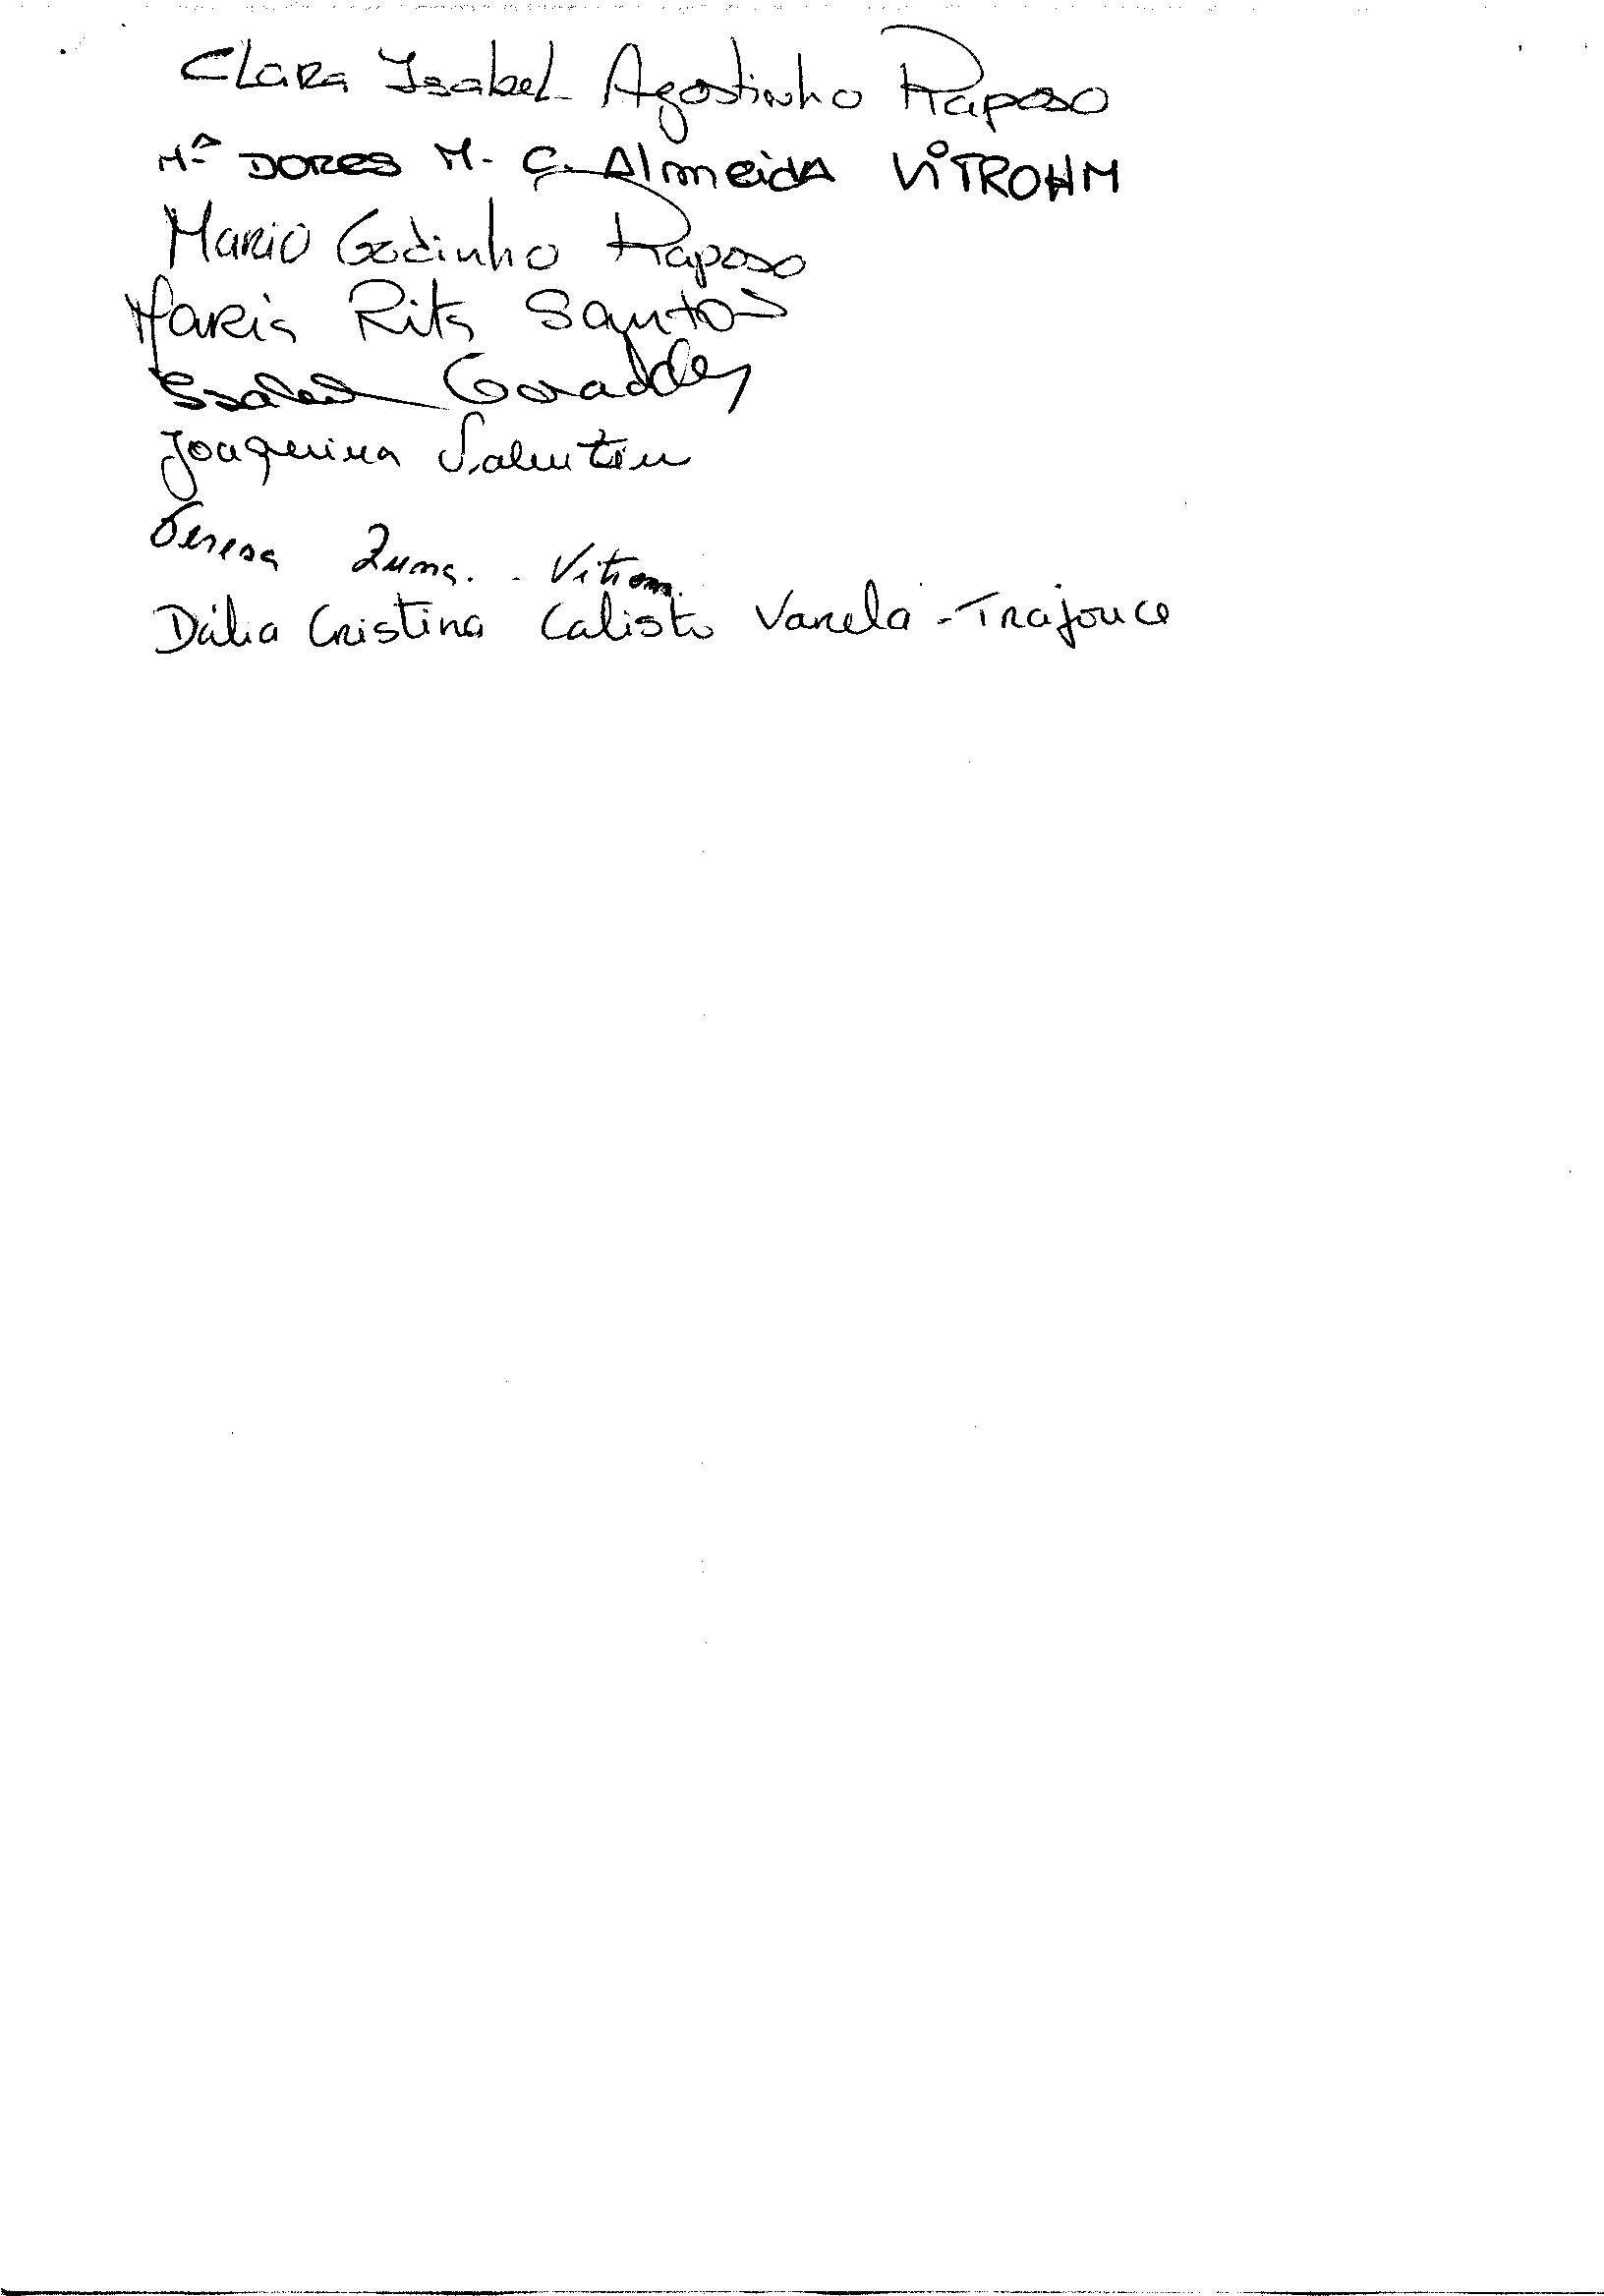 Clara Isabel Agostinho Raposo
Mª DORES M. C. AlmeidA ViTROHM
Mario Godinho Raposo
Maria Rita Santos
Isabel
Joaquina Valentim
Teresa Vitrom.
Dália Cristina Calisto Varela - Trajouce